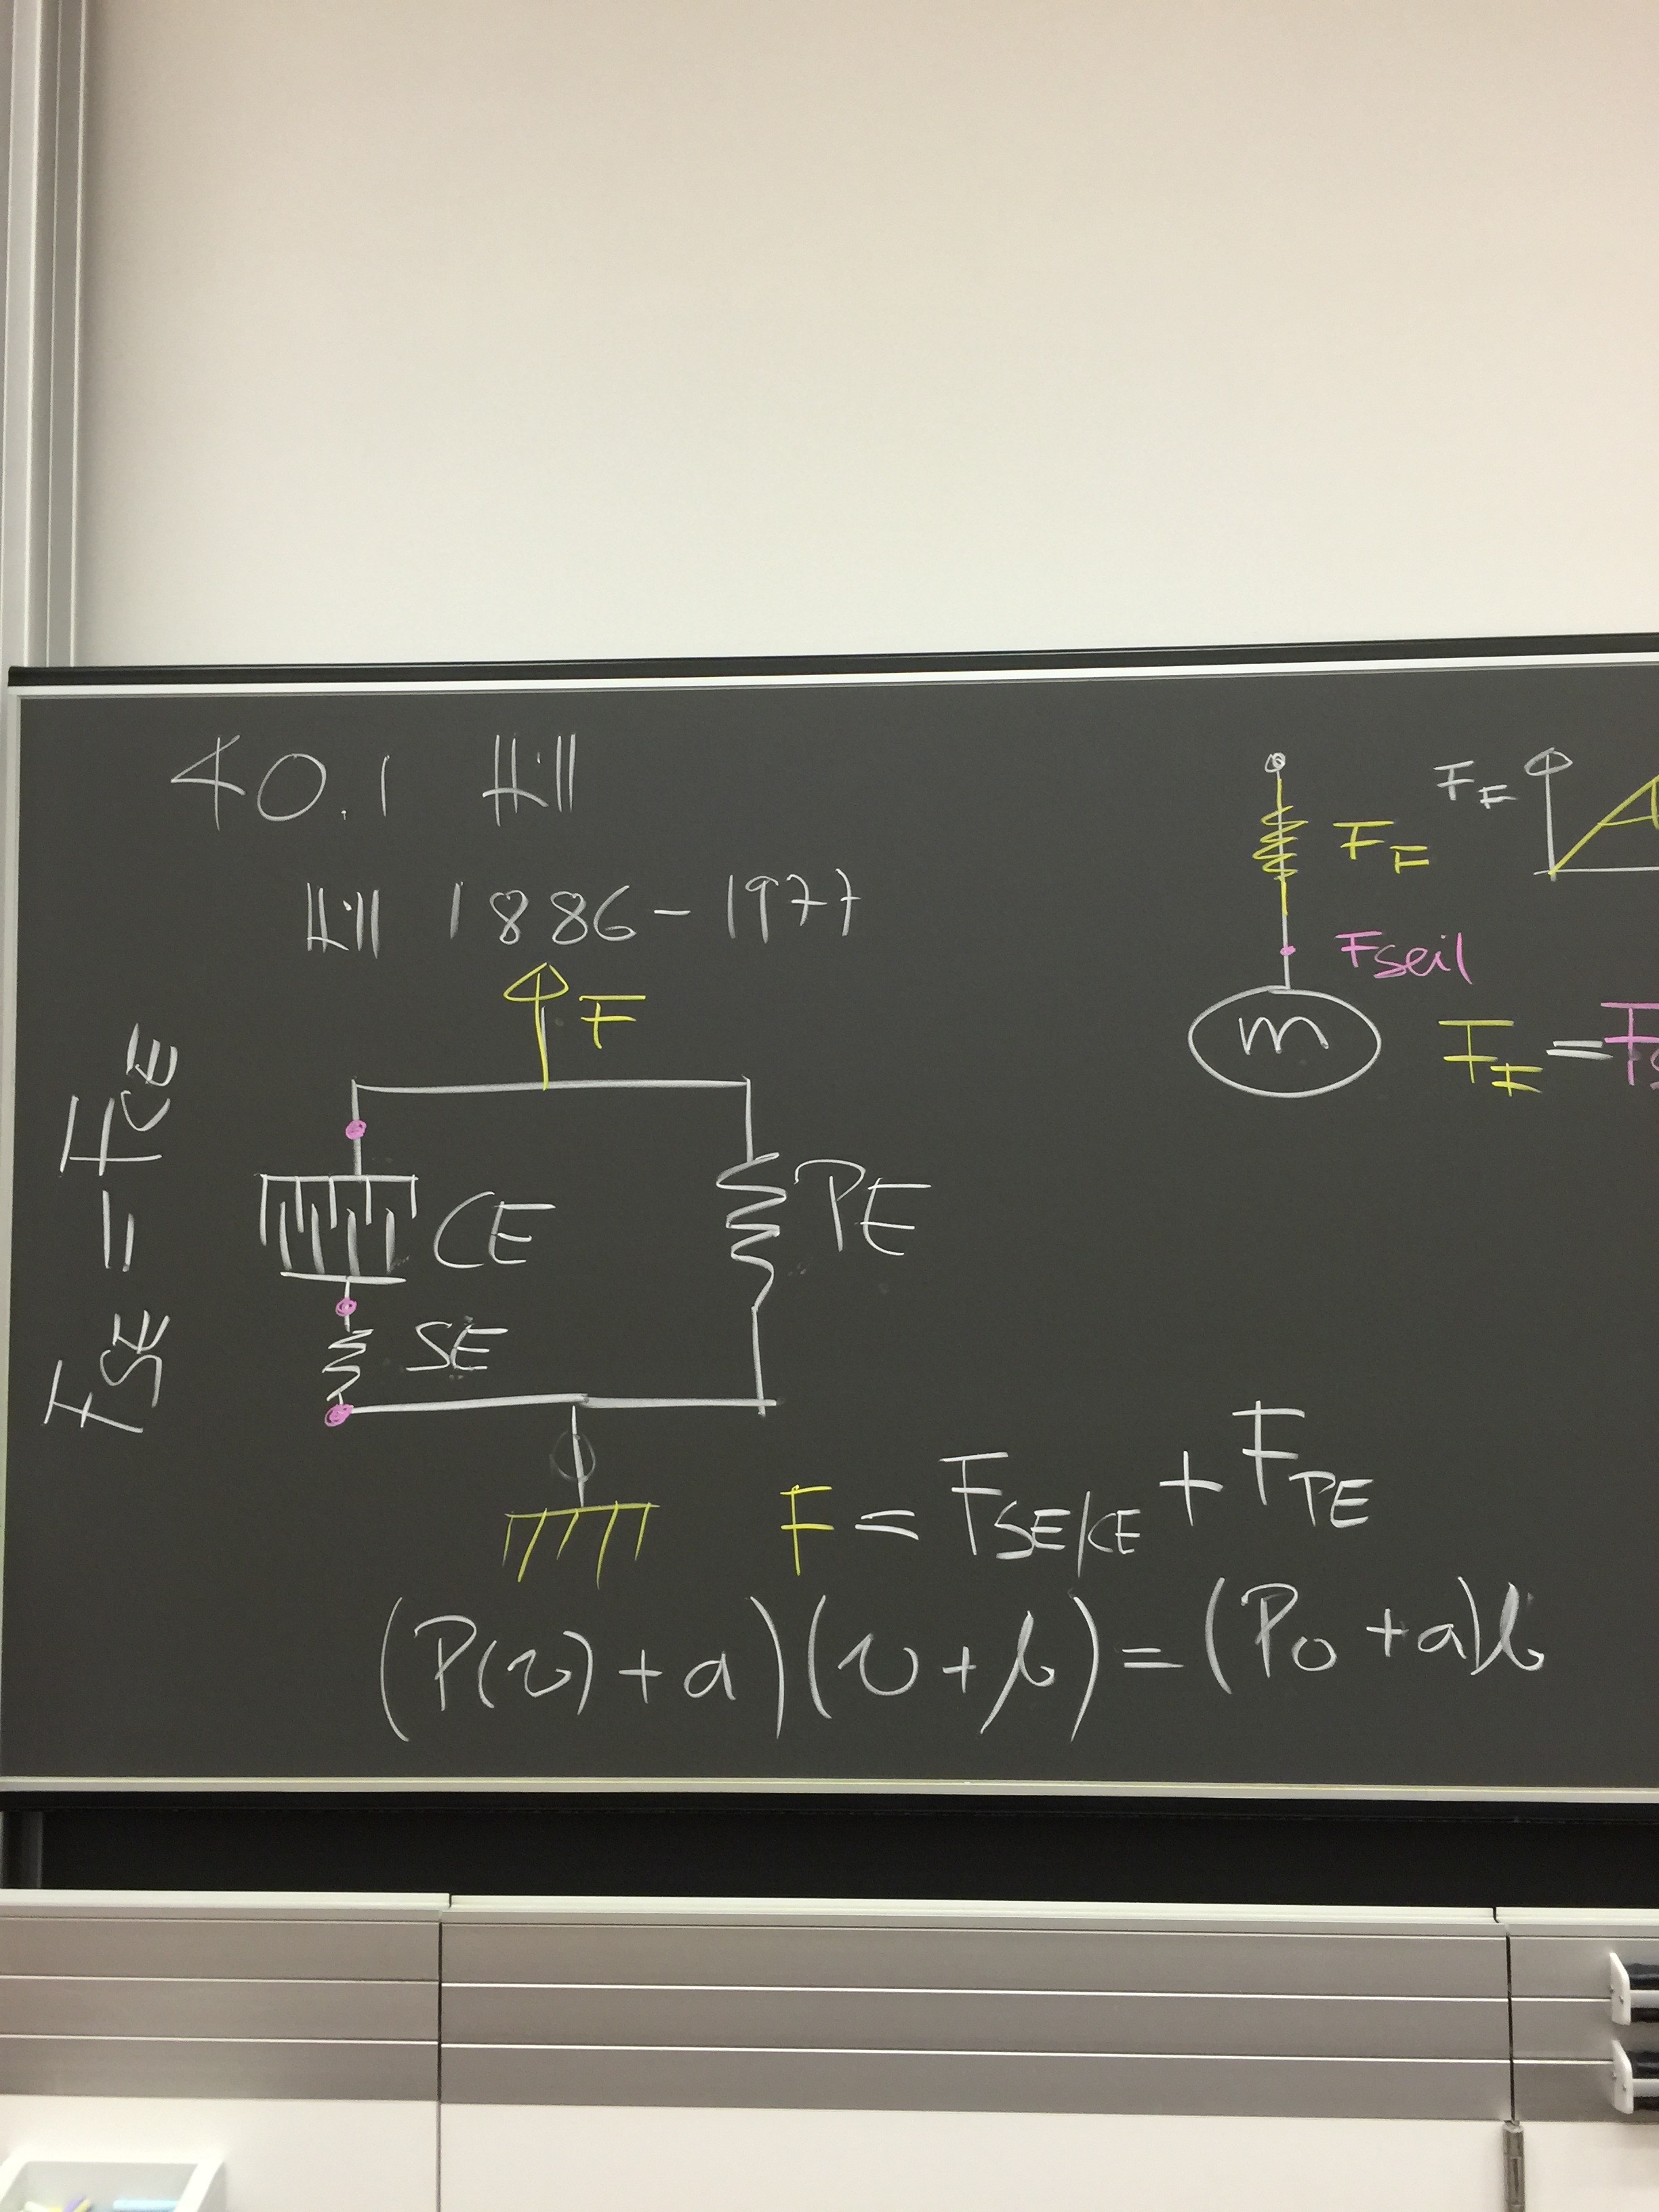 40.1 Hill
Hill 1886-1977
F
CE
SE
PE
F_SE = F_CE
F = F_SE/CE + F_PE
(P(v)+a)(v+b)=(P_0+a)b
F_F
F_F
F_seil
m
F_F =